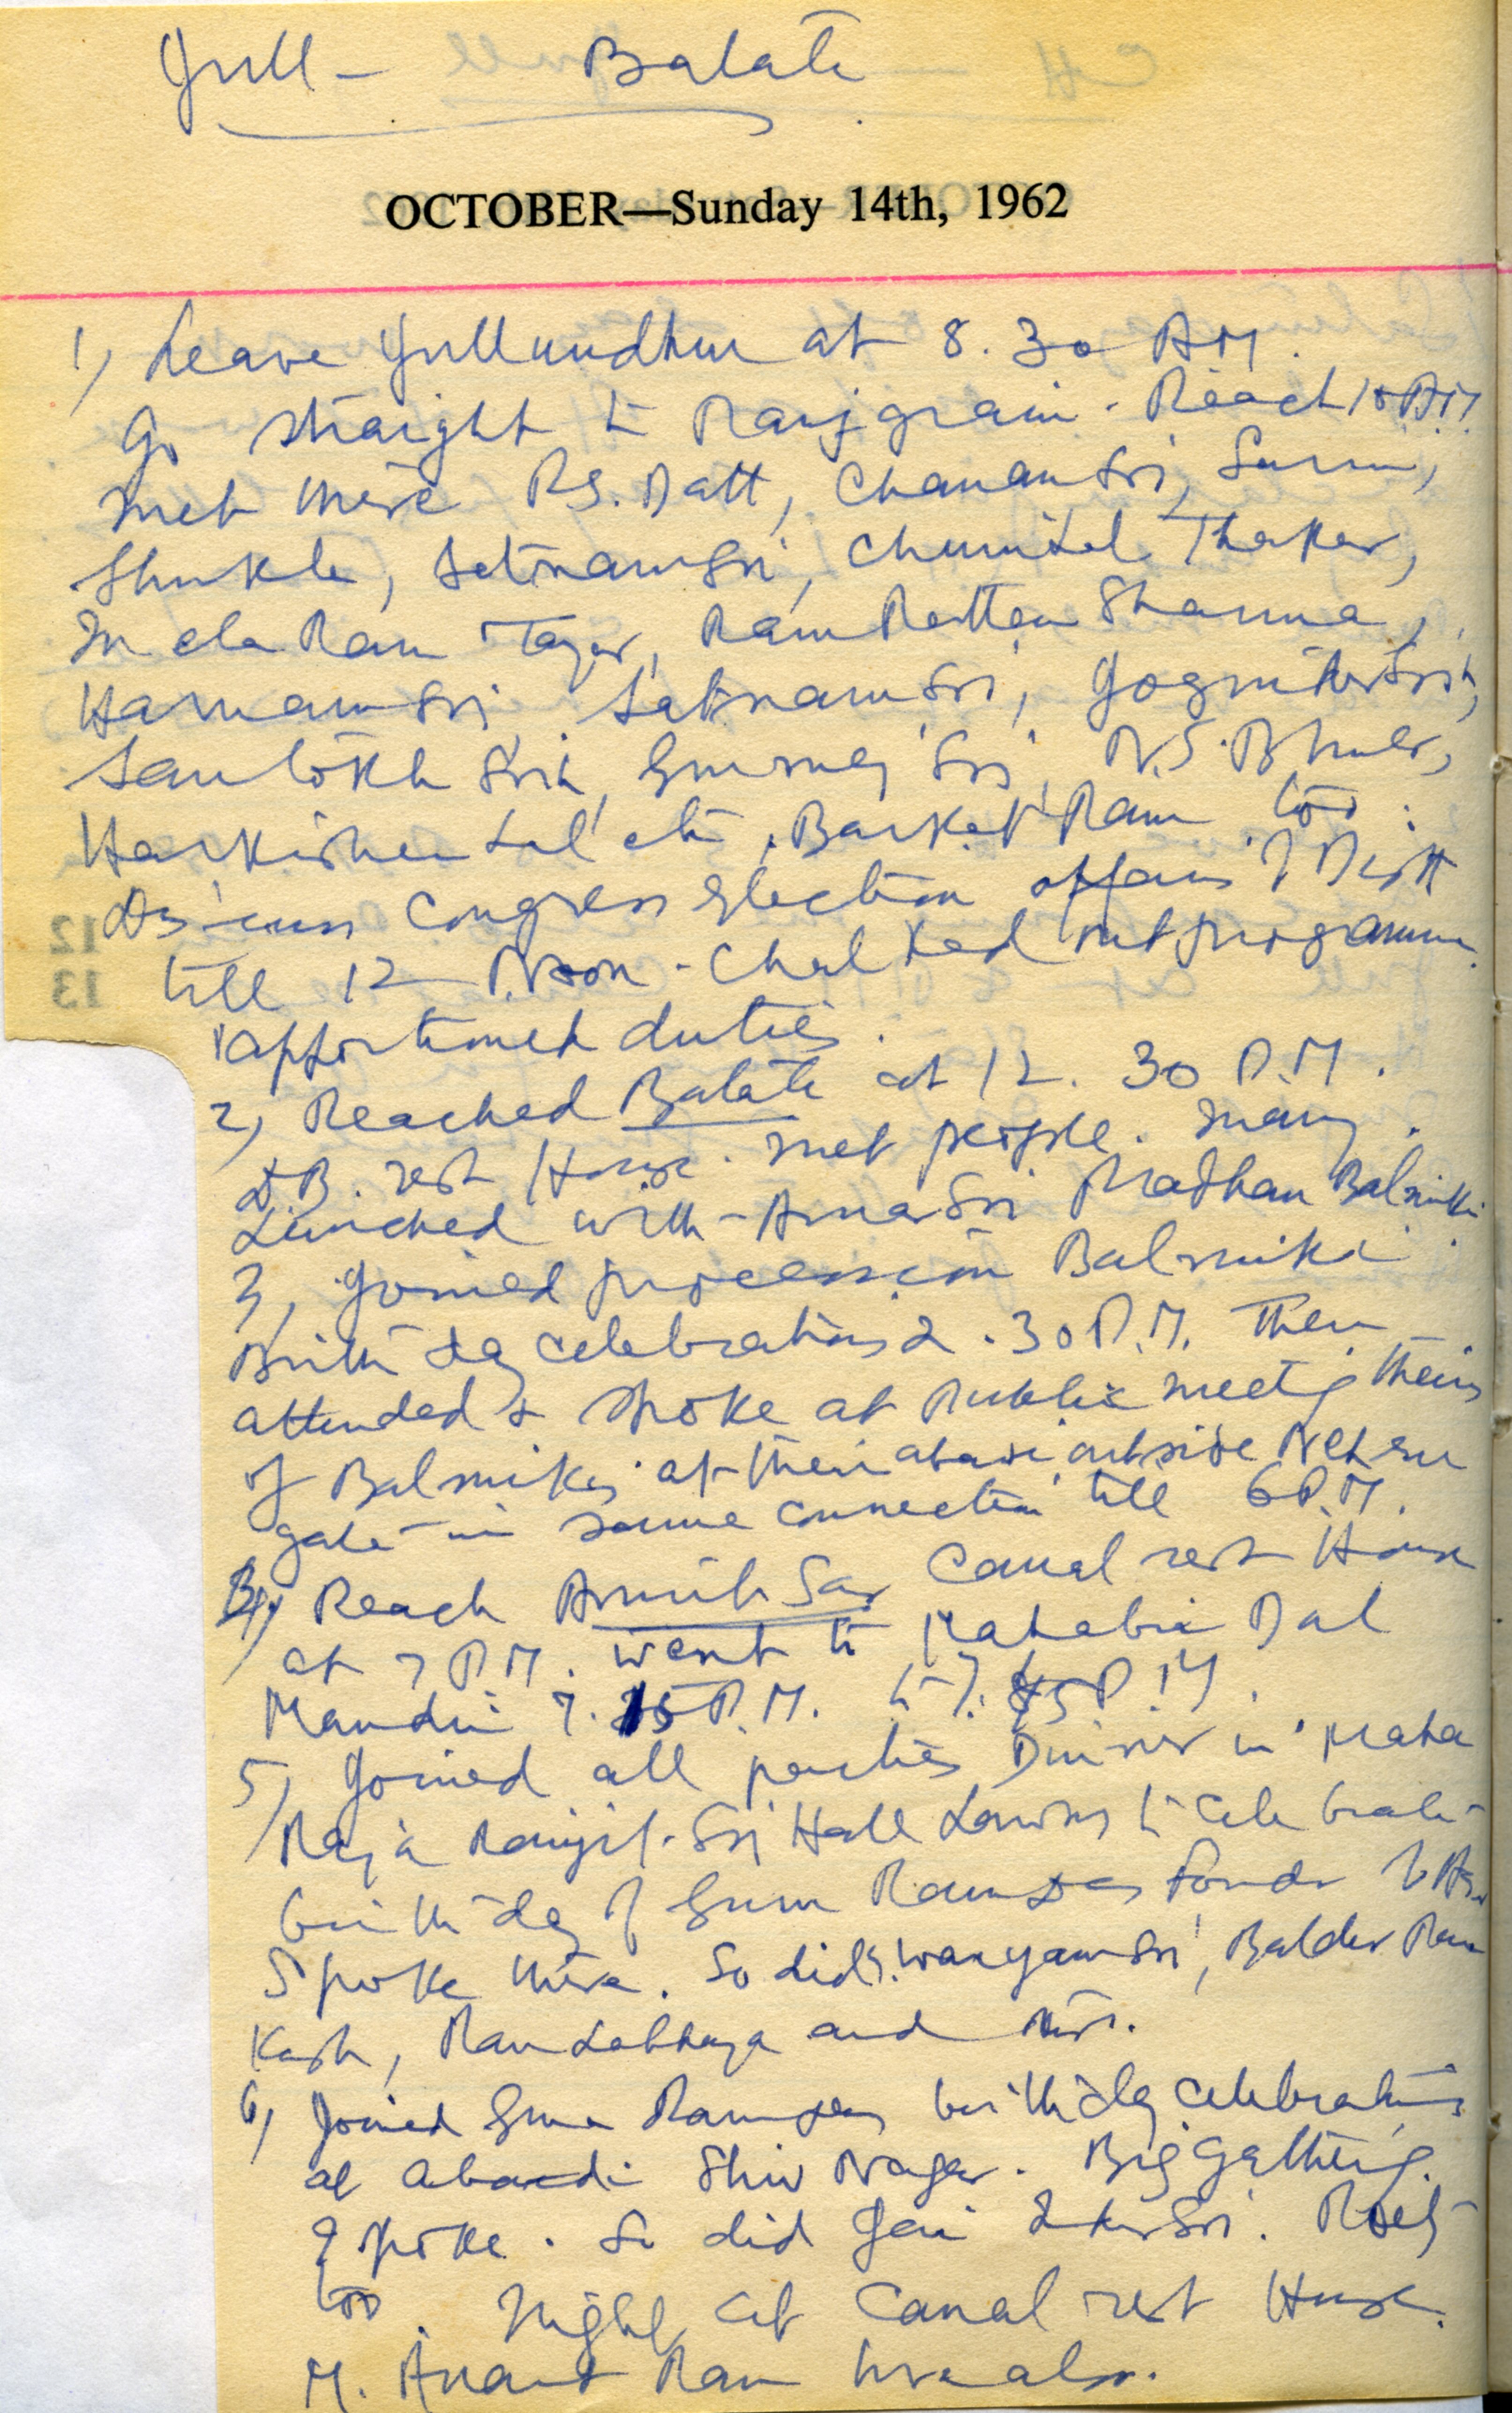 Jull - Batala
OCTOBER—Sunday 14th, 1962
1) Leave Jullundhur at 8.30 AM.
Go straight to Ranjgrain. Reach 10 A.M.
met there R.S. Datt, Chanan Sri,
Shukla, Satnam Sri, Chunilal Thaker,
Mela Ram Tayer, Ram Rattan Sharma,
Harnam Sri, Satnam Sri, Joginder Sri,
Santokh Srih, Gurmej Sri, N.S. Bhuler,
Harkishen Lal etc, Barkat Ram too.
Discuss Congress Election affairs of Distt
till 12 Noon. Chalked out programme
apportioned duties.
2) Reached Batala at 12.30 P.M.
D.B. rest House. met people. many.
Lunched with Amar Sri Pradhan Balmiki.
3, Joined procession Balmiki
Birth day celebrations 2.30 P.M. Then
attended & spoke at Public meeting
of Balmikis at their abadi outside Nehru
gate in same connection till 6 P.M.
4) Reach Amritsar Canal rest House
at 7 P.M. went to Mahabir Dal
Mandir 7.15 P.M. to 7.45 P.M.
5) Joined all parties Dinner in Maha
Raja Ranjit Sri Hall Lawns to celebrate
birthday of Guru Ramdas Founder of
Spoke there. So did S. Waryam Sri, Baldev Ram
Ram Labhaya and
6) Joined Guru Ramdas birthday celebrations
at abaadi Shiv Nagar. Big gathering.
I spoke. So did Jai Inder Sri.
too. Night at Canal rest House.
M. Anand Ram here also.
12
13